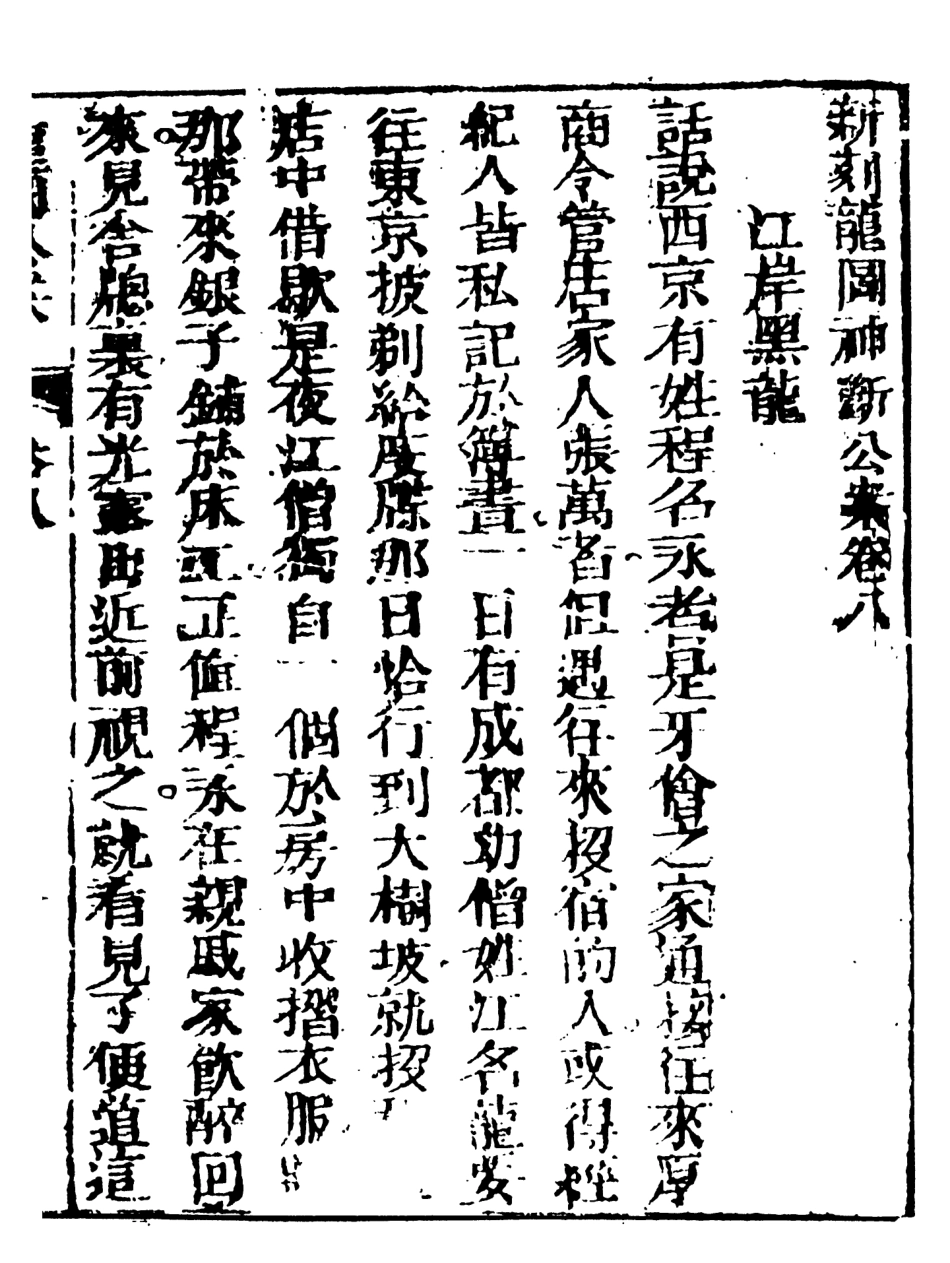 新刻龍圖神斷公案卷八
江岸黑龍
話說西京有姓程名永者是牙儈之家通接往來厚
商令管店家人張萬者但遇往來投宿的人或得經
紀人皆私記於簿書一日有成都幼僧姓江名龍要
往東京披剃給度牒那日恰行到大樹坡就投
店中借歇是夜江僧獨自一個於房中收摺衣服
那帶來銀子鋪於床正值程永在親戚家飲醉回
來見舍牕裏有光露出近前視之就看見了便道這
卷八